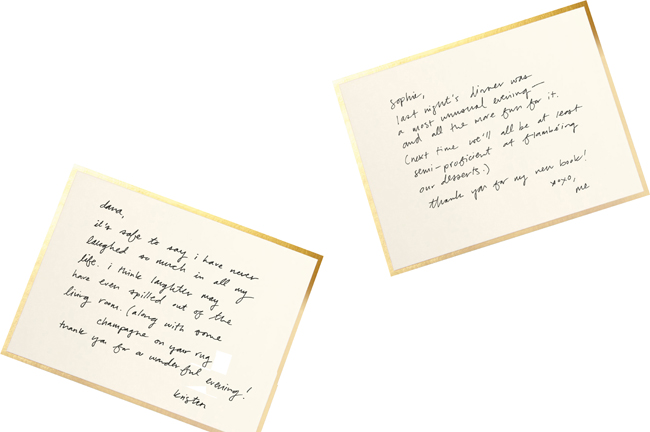 Sophie,
last night's dinner was
a most unusual evening—
and all the more fun for it.
(next time we'll all be at least
semi-proficient at flambéing
our desserts.)
thank you for my new book!
xoxo,
me
dana,
it's safe to say i have never
laughed so much in all my
life. i think laughter may
have even spilled out of the
living room. (along with some
champagne on your rug
thank you for a wonderful evening!
kristen